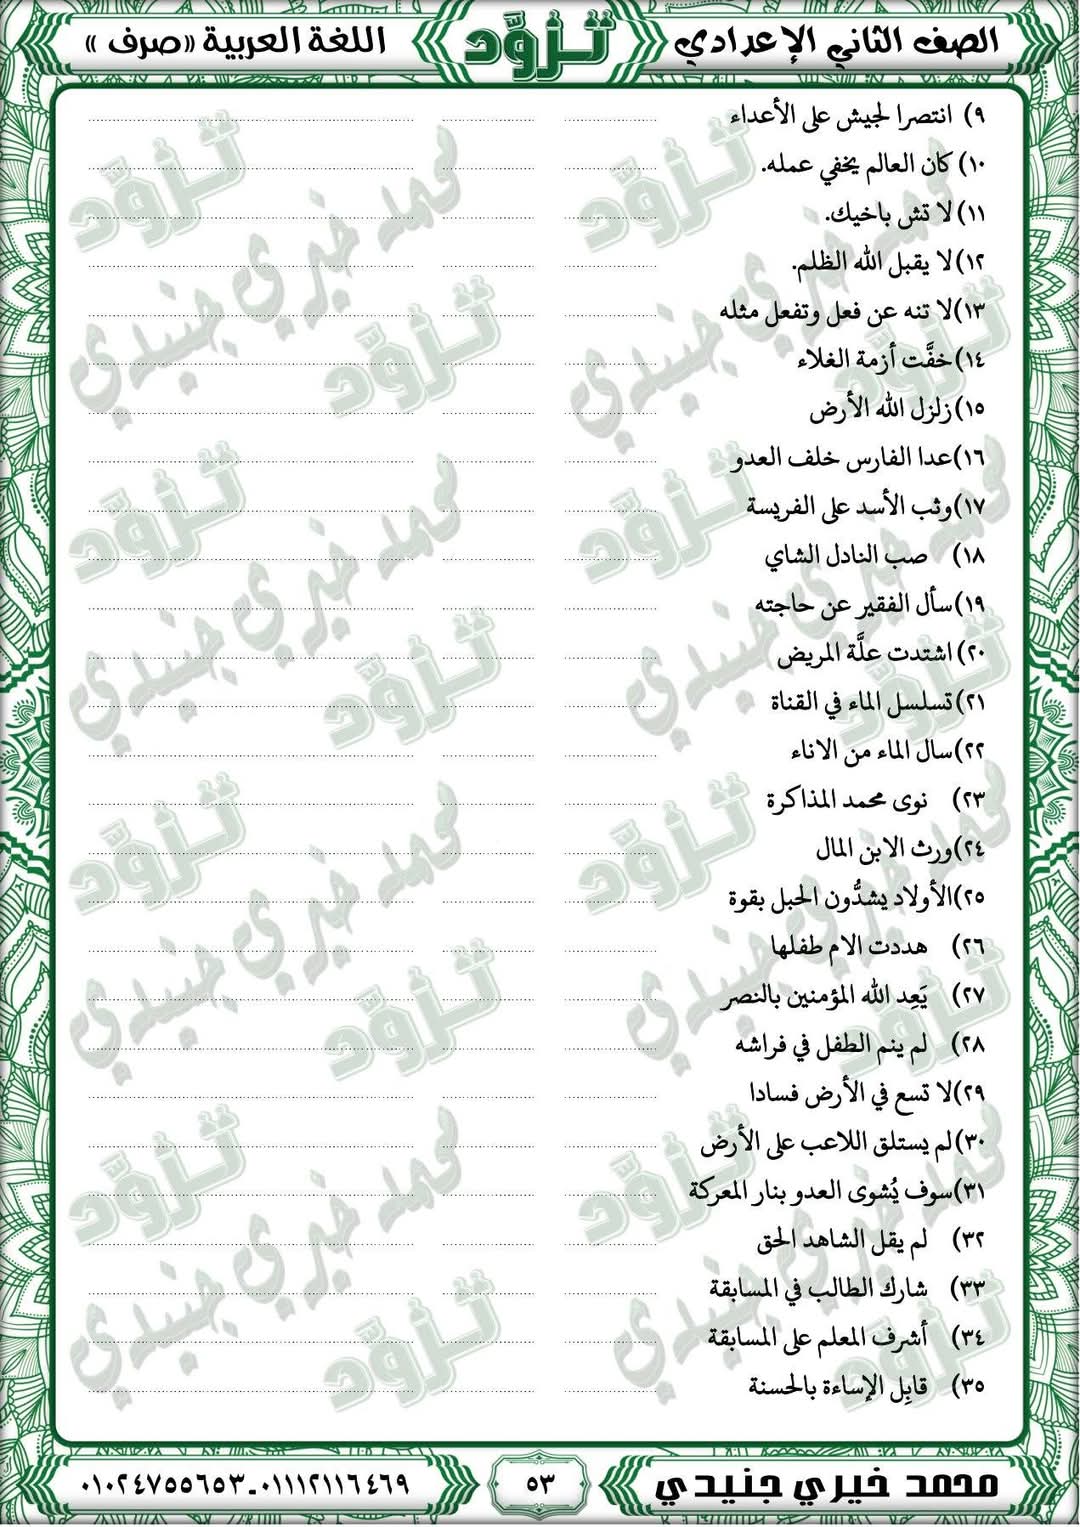 الصف الثاني الإعدادي تـزوَّد اللغة العربية «صرف»
٩) انتصرا لجيش على الأعداء
١٠) كان العالم يخفي عمله.
١١) لا تش باخيك.
١٢) لا يقبل الله الظلم.
١٣) لا تنه عن فعل وتفعل مثله
١٤) خفَّت أزمة الغلاء
١٥) زلزل الله الأرض
١٦) عدا الفارس خلف العدو
١٧) وثب الأسد على الفريسة
١٨) صب النادل الشاي
١٩) سأل الفقير عن حاجته
٢٠) اشتدت علَّة المريض
٢١) تسلسل الماء في القناة
٢٢) سال الماء من الاناء
٢٣) نوى محمد المذاكرة
٢٤) ورث الابن المال
٢٥) الأولاد يشدُّون الحبل بقوة
٢٦) هددت الام طفلها
٢٧) يَعِد الله المؤمنين بالنصر
٢٨) لم ينم الطفل في فراشه
٢٩) لا تسع في الأرض فسادا
٣٠) لم يستلق اللاعب على الأرض
٣١) سوف يُشوى العدو بنار المعركة
٣٢) لم يقل الشاهد الحق
٣٣) شارك الطالب في المسابقة
٣٤) أشرف المعلم على المسابقة
٣٥) قابِل الإساءة بالحسنة
محمد خيري جنيدي ٥٣ ٠١١١٢١١٦٤٦٩ - ٠١٠٢٤٧٥٥٦٥٣